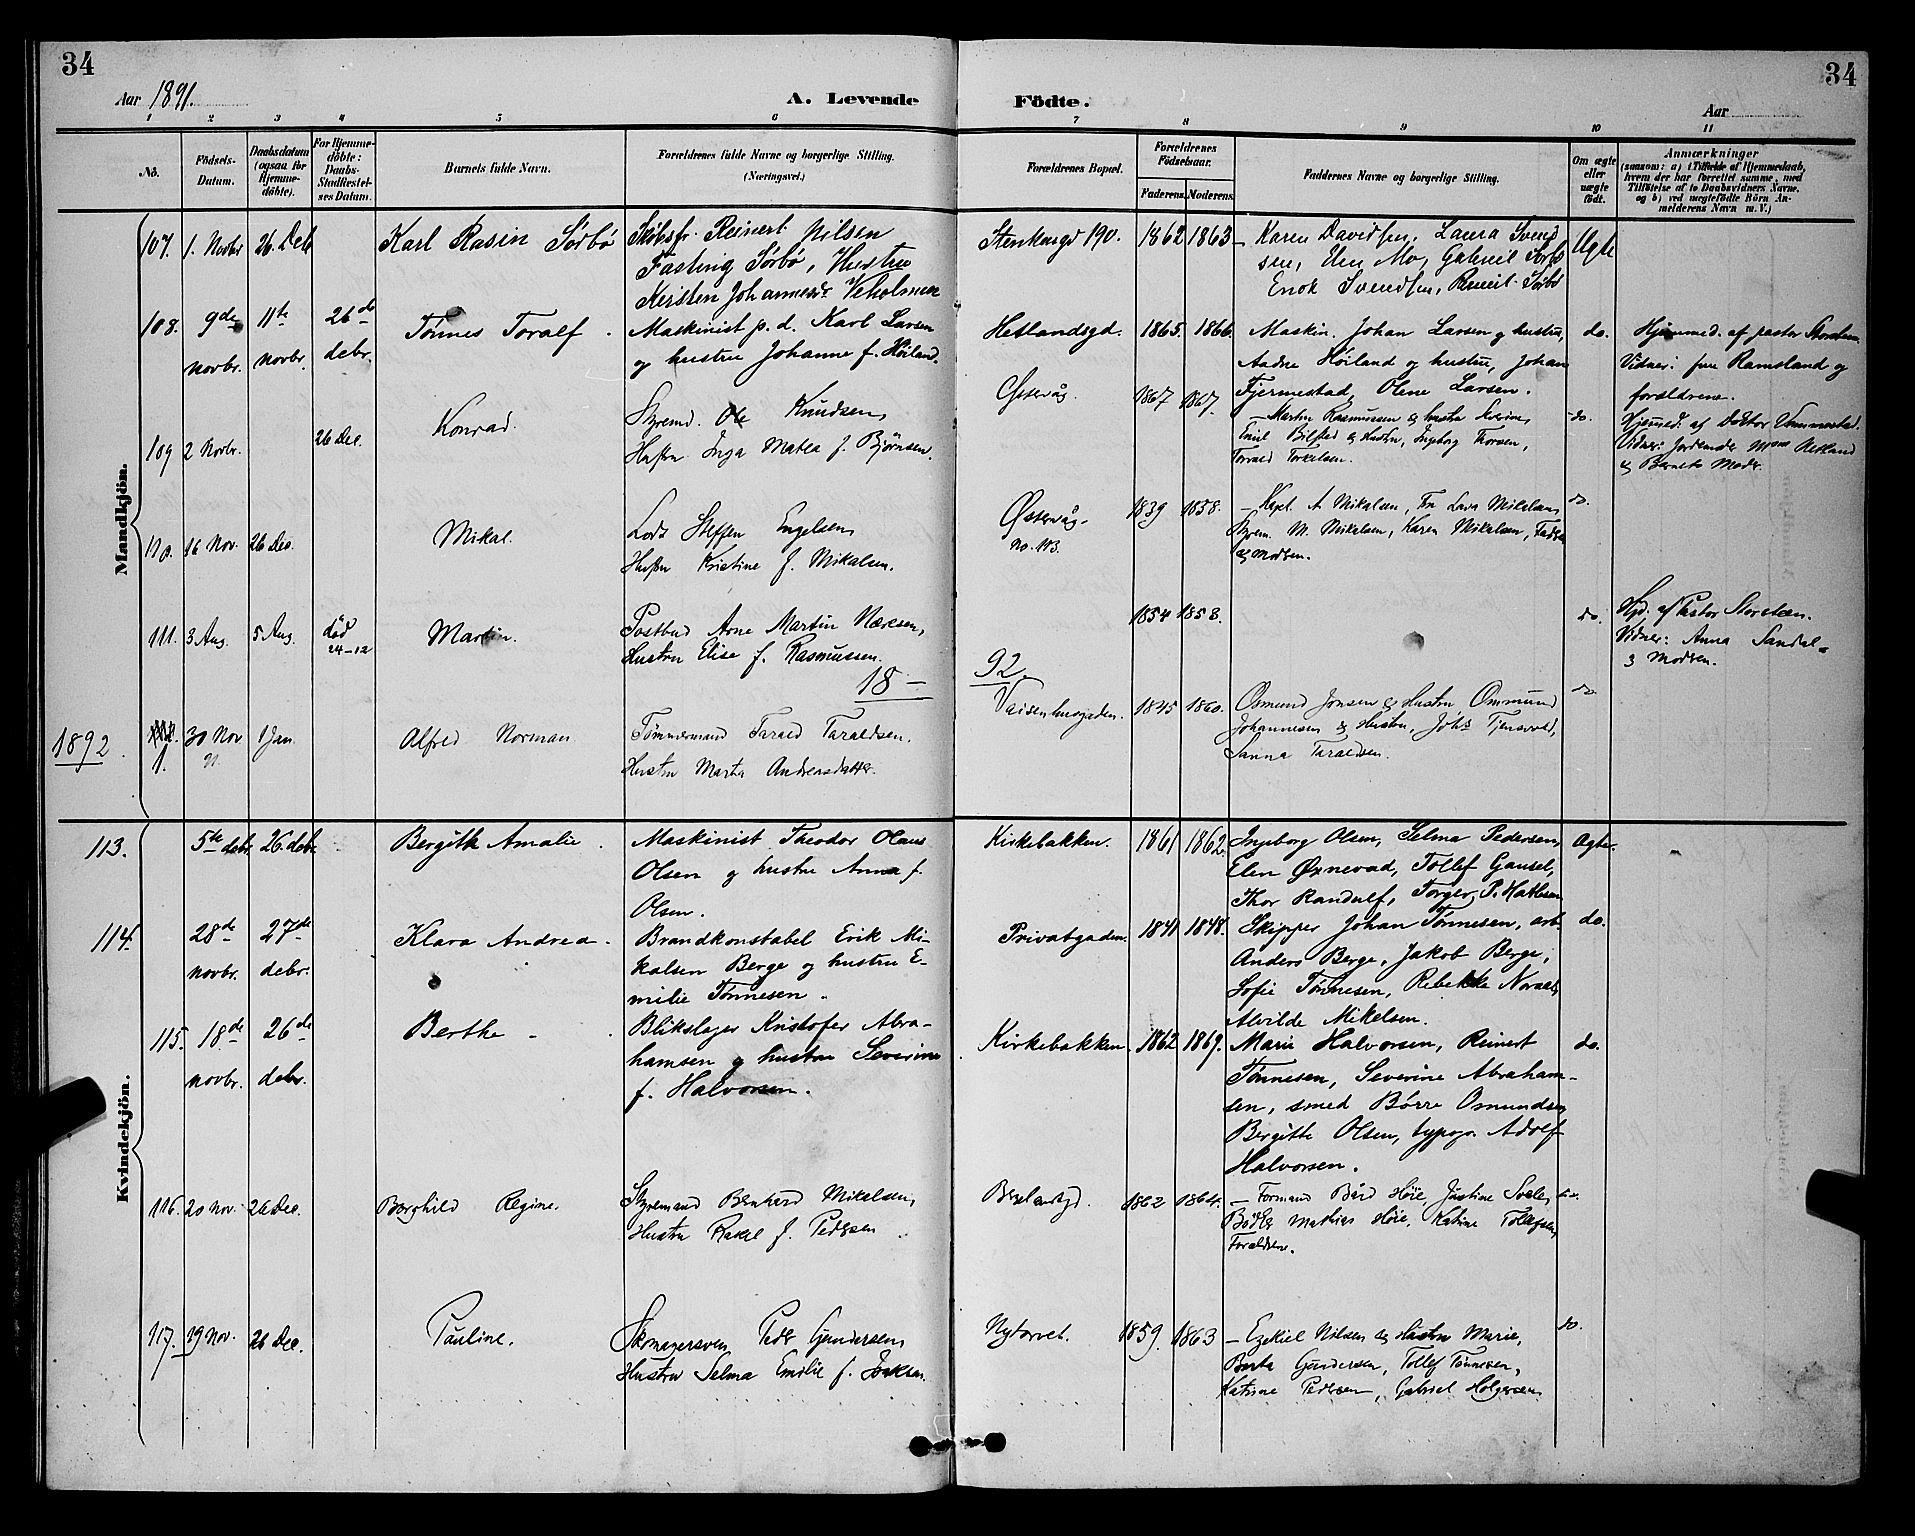 34
34
Aar 1891.
A. Levende Födte.
Aar
1 2 3 4 5 6 7 8 9 10 11
No.
Födsels-Datum.
Daabsdatum (ogsaa for Hjemmedöbte).
For Hjemmedöbte: Daabs-Stadfæstelses Datum.
Barnets fulde Navn.
Forældrenes fulde Navne og borgerlige Stilling.
(Næringsvei.)
Forældrenes Bopæl.
Forældrenes Födselsaar.
Faderens. Moderens.
Faddernes Navne og borgerlige Stilling.
Om ægte eller uægte födt.
Anmærkninger
(saasom: a) i Tilfælde af Hjemmedaab, hvem der har forrettet samme, med Tilföielse af to Daabsvidners Navne, og b) ved uægtefödte Börn Anmelderens Navn m. V.)
Mandkjön.
107. 1. Novbr 26 Deb Karl Rasin Sörbö Skibsfr. Reinert Nilsen
Fasting Sörbö, Hustru
Kirsten Johannesdr Veholmen
Stenkargd 190. 1862 1863 – Karen Davidsen, Laura Svend
sen, Elen Mo, Gabriel
Enok Svendsen, Reinert Sörbö
Ægte
108. 9de novbr. 11te novbr. 26de debr. Tönnes Toralf. Maskinist p. d. Karl Larsen
og hustru Johanne f. Höiland.
Hetlandsgd. 1865. 1866. Maskin. Johan Larsen og hustru,
Aadne Höiland og hustru, Johan
Fjermestad, Olene Larsen.
do. Hjemmed. af pastor Storsten.
Vidner: fru Ramsland og
forældrene.
109 2 Novbr. 26 Dec. Konrad. Styrmd. Ole Knudsen,
Hustru Inga Matea f. Björnsen.
Østervåg. 1867 1867. – Martin Rasmussen og hustru
Emil Bilsted og Hustru, Ingeborg Thorsen,
Torvald Torkelsen.
do. Hjemmed. af Doktor
Vidner: Jordemor
og Barnets Moder.
110. 16 Nov. 26 Dec. Mikal. Lods Steffen Engelsen,
Hustru Kristine f. Mikalsen.
Østervåg.
No. 113.
1839 1858. – Kapt. A Mikalsen, Fru Lava Mikelsen
Styrm. M. Mikelsen, Karen Mikalsen, Fader
og Modren.
do.
111. 3 Aug. 5 Aug. död 24-12 Martin. Postbud Arne Martin Næresen,
Hustru Elise f. Rasmussen.
1854 1853. do. Hjd. af Pastor Storsten.
Vidner: Anna Sandal
og Modren.
18 – 92.
1892. 1. 30 Nov 91. 1 Jan. Alfred Norman. Tömmermand Tarald Taraldsen.
Hustru Marta Andreasdatter.
Vaisenhusgaden. 1845 1860. Osmund Jonsen og Hustru, Ommund
Johannesen og Hustru, Johs Tjensvold,
Sanna Taraldsen.
do
Kvindekjön.
113. 5te debr. 26. debr. Bergitte Amalie. Maskinist Theodor Olaus
Olsen og hustru Anna f.
Olsen.
Kirkebakken. 1861 1862. Ingeborg Olsen, Selma Pedersen,
Elen Ørnevad, Tollef Gausel,
Thor Randulf, Torger P. Hatlesen
Ægte.
114. 28de novbr. 27de debr. Klara Andrea. Brandkonstabel Erik Mi-
kalsen Berge og hustru E-
milie Tönnesen.
Privatgaden. 1841 1848. Skipper Johan Tönnesen, arb.
Anders Berge, Jakob Berge,
Sofie Tönnesen, Rebekke
Alvilde Mikelsen.
do.
115. 18de novbr. 26de debr. Berthe – Blikslager Kristofer Abra-
hamsen og hustru Severine
f. Halvorsen.
Kirkebakken. 1862 1869. Marie Halvorsen, Reinert
Tönnesen, Severine Abraham-
sen, smed Börre Omundsen
Bergitte Olsen, typogr. Adolf
Halvorsen.
do.
116. 20 Nov. 26 Dec. Borghild Regine. Styrmand Bernhard Mikalsen,
Hustru Rakel f. Pedersen
1862 1864. – Formand Bård Höie, Justine Svele,
Böd Mathias Höie, Katrine Tollefsen
Forældrene.
do.
117. 19 Nov. 26 Dec. Pauline. Skomagersven Peder Gundersen,
Hustru Selma Emilie f.
Nytorvet. 1859. 1863 – Ezekiel Nilsen og Hustru Marie,
Berta Gundersen, Tollef Tönnesen,
Katrine Pedersen, Gabriel Holgersen
do.